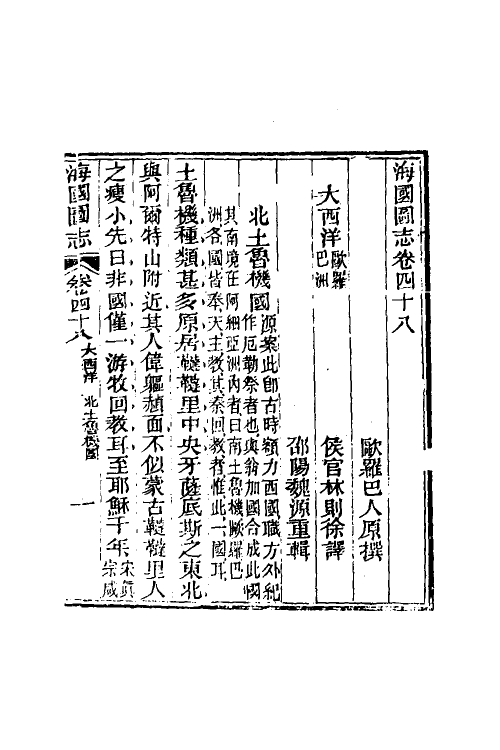 海國圖志卷四十八
歐羅巴人原撰
侯官林則徐譯
邵陽魏源重輯
大西洋歐羅巴洲
北土魯機國源案此卽古時額力西國職方外紀
作厄勒祭者也與翁加國合成此國
其南境在阿細亞洲內者曰南土魯機歐羅巴
洲各國皆奉天主教其奉回教者惟此一國耳
土魯機種類甚多原居韃韃里中央牙薩底斯之東北
與阿爾特山附近其人偉軀赬面不似蒙古韃韃里人
之瘦小先日非國僅一游牧回教耳至耶穌千年宋眞
宗咸
海國圖志
卷四十八
大西洋 北土魯機國
一